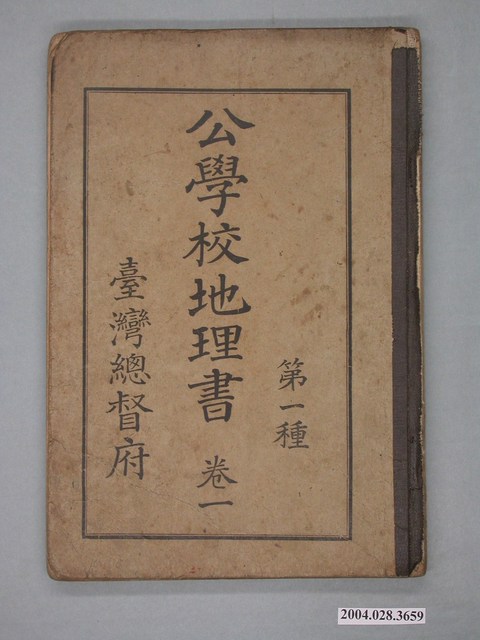 第一種
公學校地理書 卷一
臺灣總督府
2004.028.3659